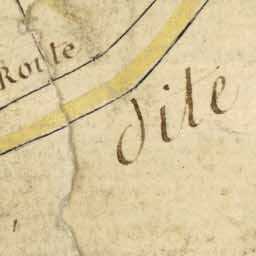 Route
dite